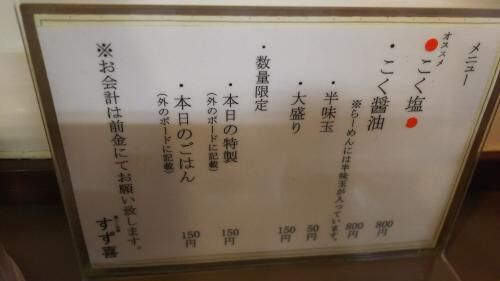 メニュー
オススメ
こく塩
800円
・こく醤油
800円
※らーめんには半味玉が入っています。
・半味玉
50円
・大盛り
150円
・数量限定
・本日の特製
150円
(外のボードに記載)
・本日のごはん
150円
(外のボードに記載)
※お会計は前金にてお願い致します。
すず喜